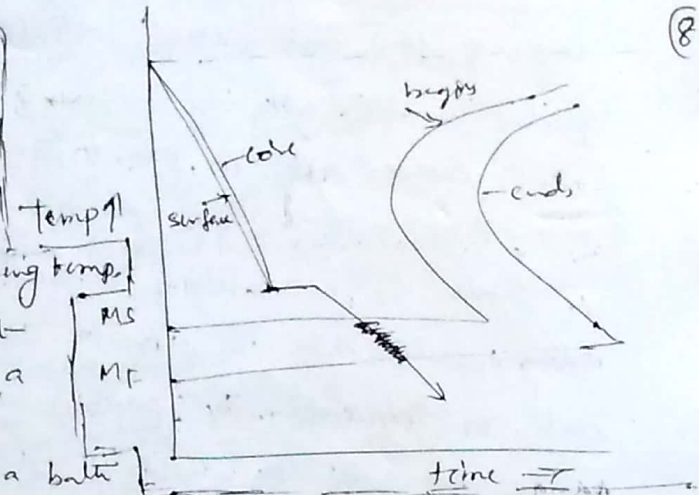 8
begins
core
ends
surface
temp↑
ing temp.
MS
a
MF
a bath
time →